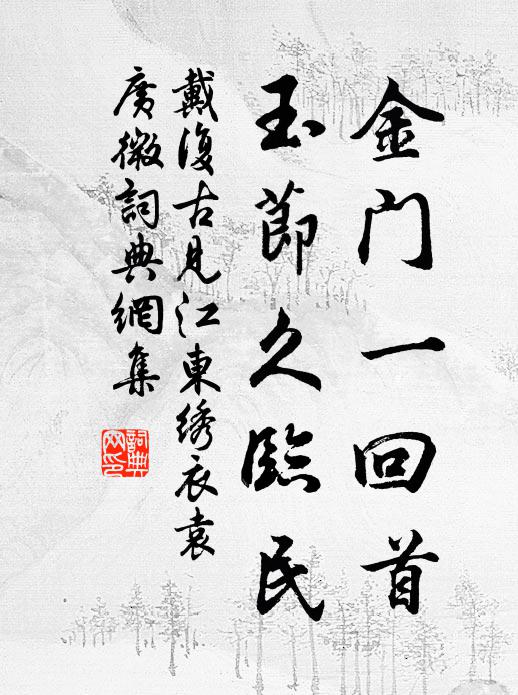 金门一回首
玉節久臨民
戴復古見江東綉衣袁
廣微詞典網集
詞典
网印